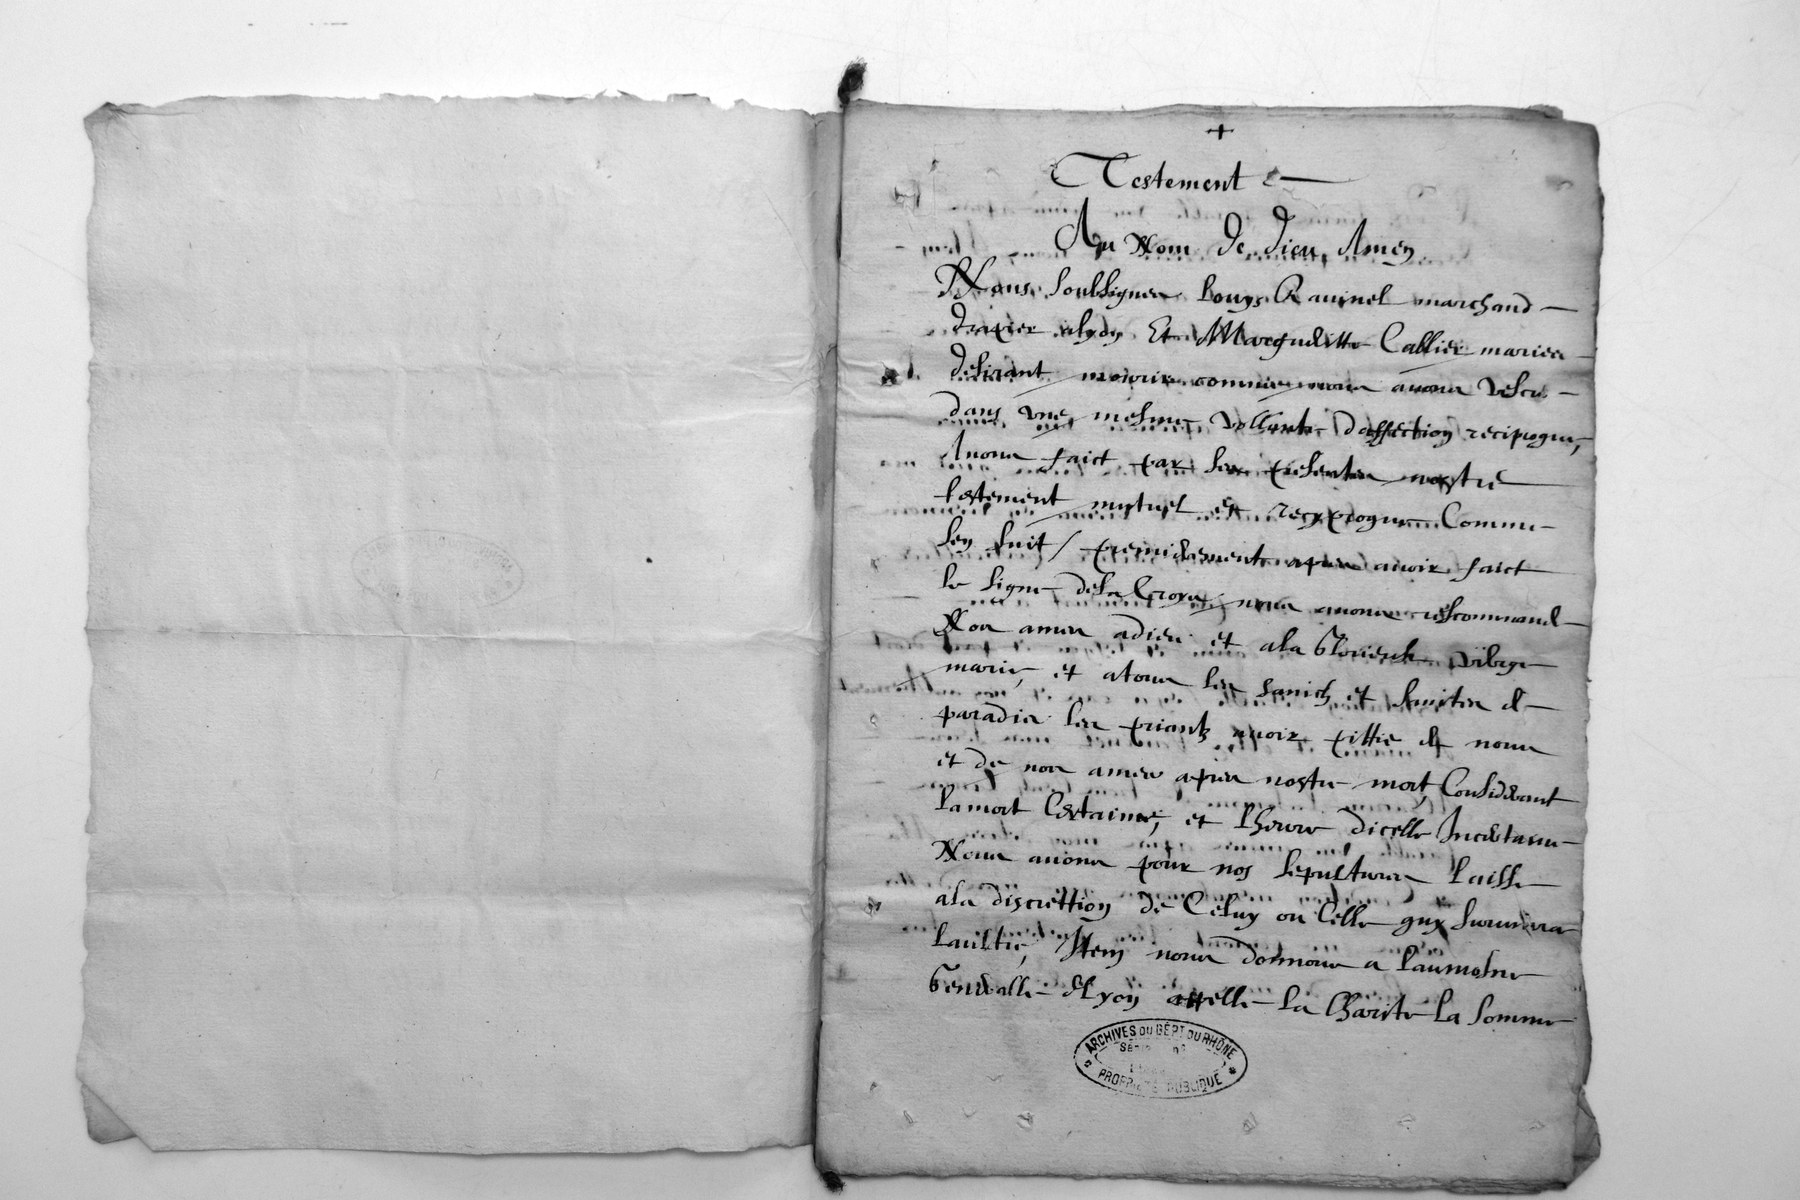 +
Testement
Au Nom de dieu Amen
Nous soubsignes Louys Rauinel marchand
drapier alyon Et Margueritte Callier maries
desirant mourir comme nous auons vescu
dans vne mesme vollante daffection reciproque,
Auons faict par les presentes nostre
testement mutuel et recyproque Comme
sen suit / premierement apres auoir faict
le signe dela Croys, nous auons rescommande
Nos ames adieu et ala Glorieuse vierge
marie, et atous les sainch et saintes de
paradis les priants auoir pittie de nous
et de nos ames apres nostre mort, Considerant
lamort Certaine, et lheure dicelle Incertaine
Nous auons pour nos sepultures laisse
ala discrettion de Celuy ou Celle quy suruiura
laultre, Item nous donnons a laumosne
Generalle de Lyon appelle la Charite la somme
ARCHIVES DU DÉPT DU RHÔNE
PROPRIÉTÉ PUBLIQUE